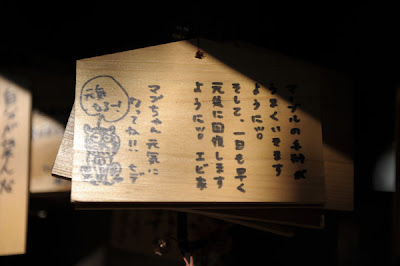 マブルの手術が
うまくいきます
ように!!
そして、一日も早く
元気に回復します
ように!! エビ家
マブちゃん 元気に
なってね!!
元気